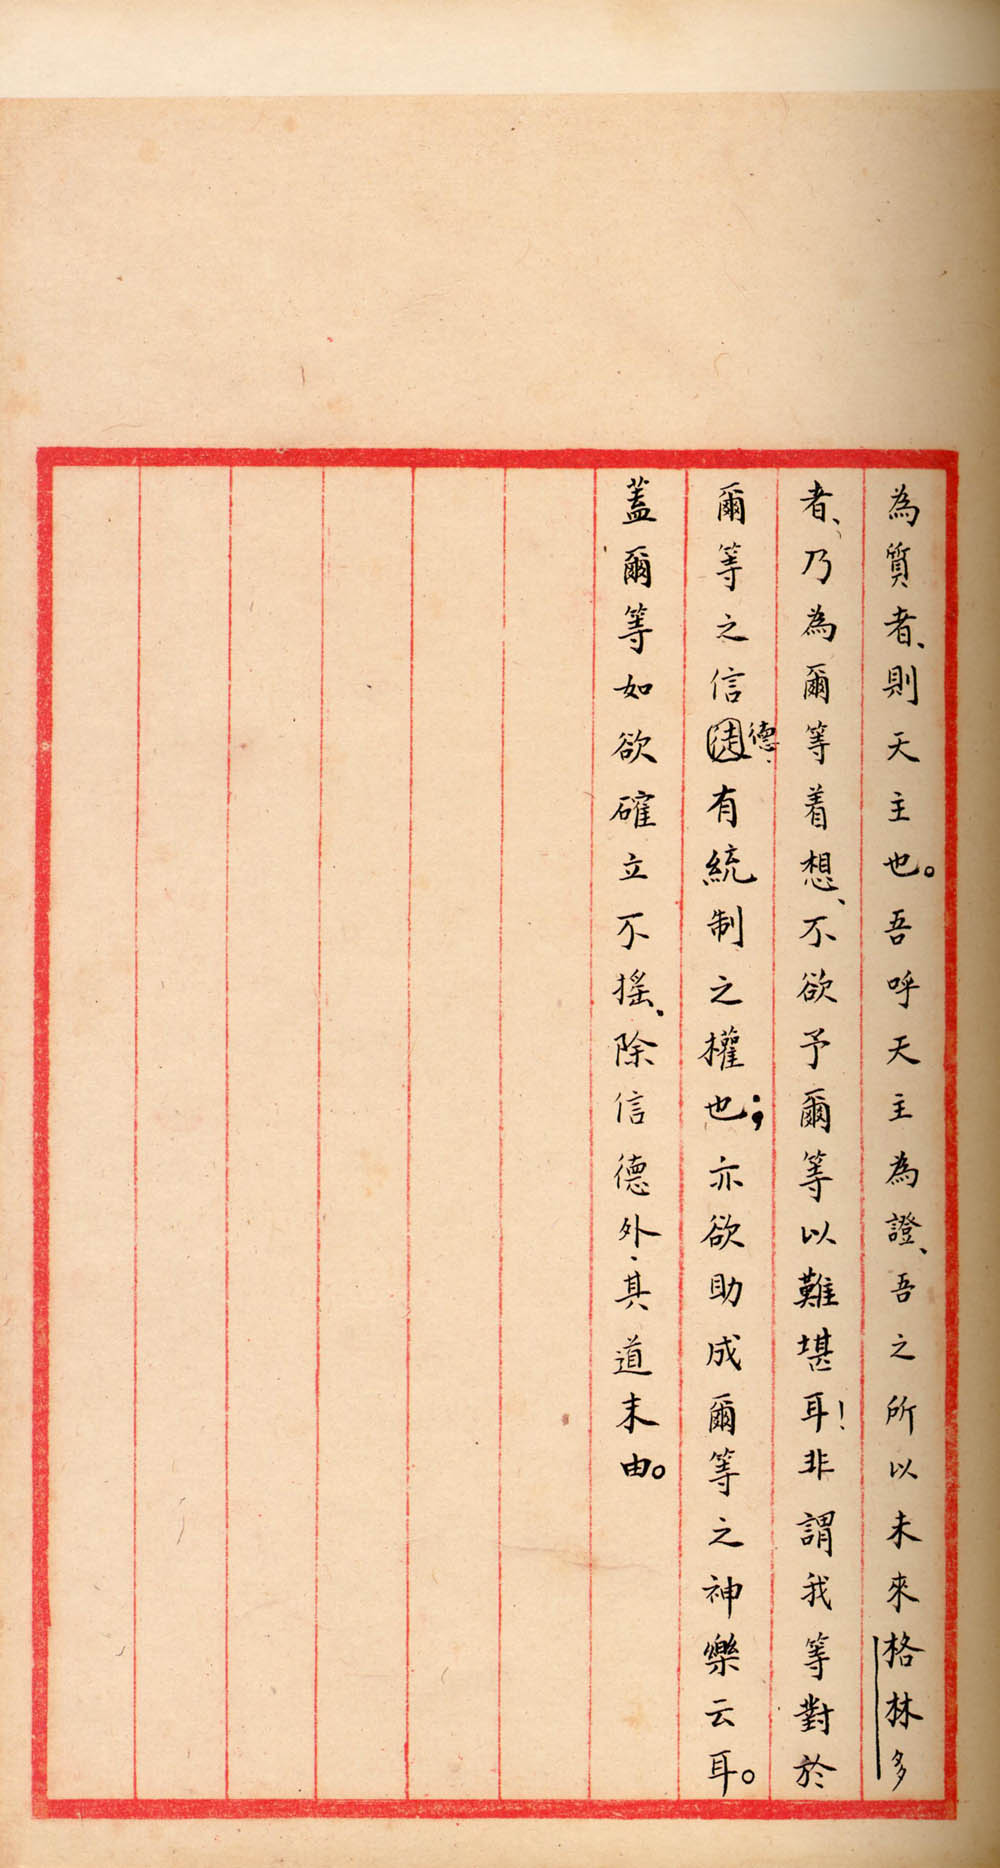 為質者、則天主也。吾呼天主為證、吾之所以未來格林多
者、乃為爾等着想、不欲予爾等以難堪耳!非謂我等對於
爾等之信徒德、有統制之權也;亦欲助成爾等之神樂云耳。
蓋爾等如欲確立不搖、除信德外、其道末由。